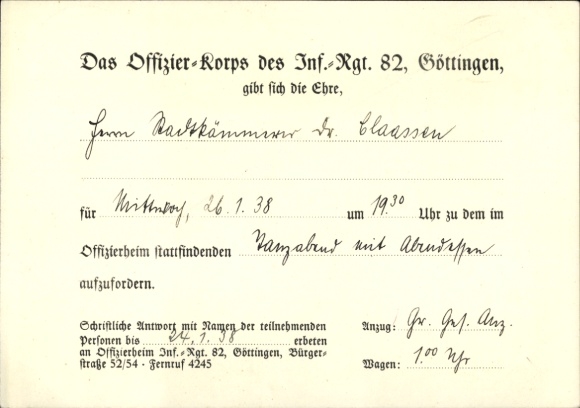 Das Offizier-Korps des Inf.-Rgt. 82, Göttingen,
gibt sich die Ehre,
Herrn Stadtkämmerer Dr. Claassen
für Mittwoch, 26.1.38 um 19.30 Uhr zu dem im
Offizierheim stattfindenden Tanzabend mit Abendessen
aufzufordern.
Schriftliche Antwort mit Namen der teilnehmenden
Personen bis 24.1.38 erbeten
an Offizierheim Inf.-Rgt. 82, Göttingen, Bürger-
straße 52/54 · Fernruf 4245
Anzug: Gr. Ges. Anz.
Wagen: 1.00 Uhr